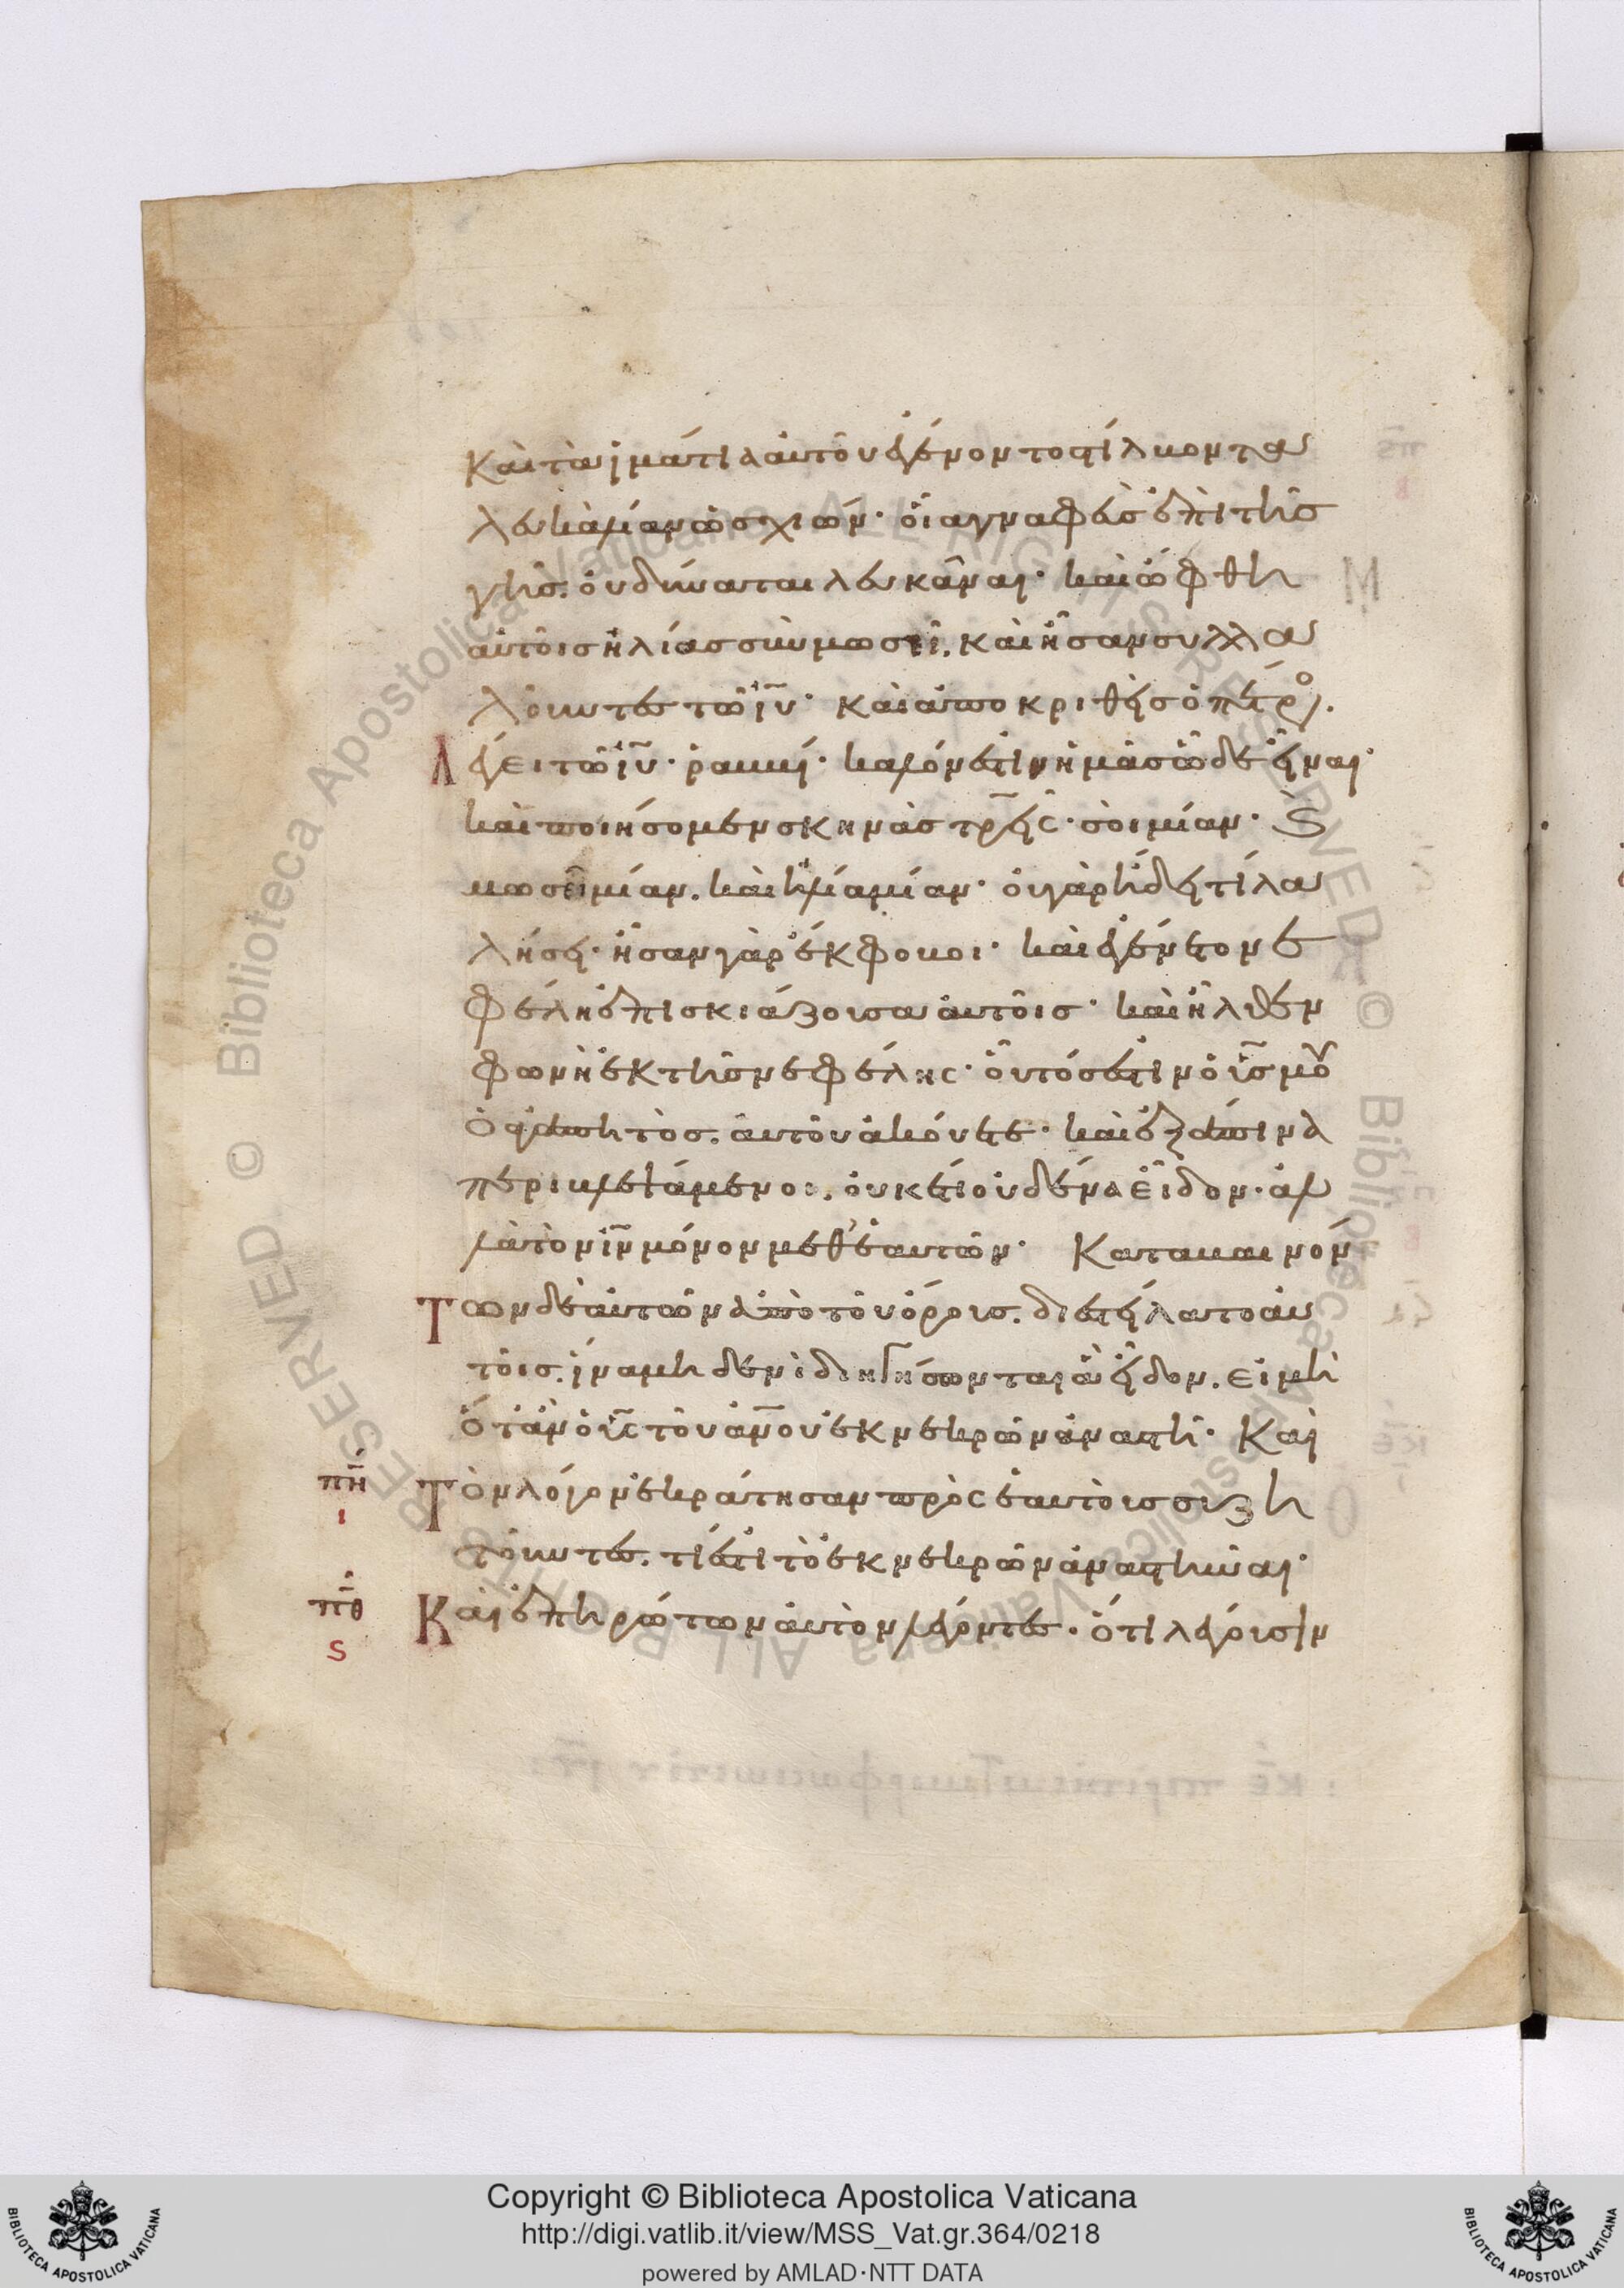 καὶ τὰ ἱμάτια αὐτοῦ ἐγένοντο στίλβοντα
λευκὰ λίαν ὡσ χιών· οἷα γναφεὺσ ἐπὶ τῆσ
γῆσ. οὐ δύναται λευκᾶναι· καὶ ὤφθη
αὐτοῖσ ἠλίασ σὺν μωσεῖ. καὶ ἦσαν συλλα
λοῦντεσ τῶ ἰυ· καὶ ἀποκριθεὶσ ὁ πέτρος.
Λέγει τῶ ἰυ· ῥαββί· καλόν ἐστιν ἡμᾶσ ὧδε εἶναι·
καὶ ποιήσομεν σκηνὰσ τρεῖς· σοὶ μίαν· Ϛ
μωσεῖ μίαν. καὶ ἠλία μίαν· οὐ γὰρ ἤδει τί λα
λήσει· ἦσαν γὰρ ἔκφοβοι· καὶ ἐγένετο νε
φέλη ἐπισκιάζουσα αὐτοῖσ· καὶ ἦλθεν
φωνὴ ἐκ τῆσ νεφέλης· οὗτόσ ἐστιν ὁ υἱσ μου
ὁ ἀγαπητὸσ. αὐτοῦ ἀκούετε· καὶ ἐξάπινα
περιβλεψάμενοι. οὐκέτι οὐδένα εἶδον· ἀλ
λὰ τὸν ἰν μόνον μεθ' ἑαυτῶν· Καταβαινόν
Των δὲ αὐτῶν ἀπὸ τοῦ ὄρουσ. διεστείλατο αὐ
τοῖσ. ἵνα μηδενὶ διηγήσωνται ἃ εἶδον. εἰ μὴ
ὅταν ὁ υἱς τοῦ ἀνου ἐκ νεκρῶν ἀναστῆ· Καὶ
πη
ι
Τὸν λόγον ἐκράτησαν πρὸς ἑαυτοὺσ συζη
τοῦντεσ. τί ἐστι τὸ ἐκ νεκρῶν ἀναστῆναι·
πθ
ς
Καὶ ἐπηρώτων αὐτὸν λέγοντεσ. ὅτι λέγουσιν
Copyright © Biblioteca Apostolica Vaticana
http://digi.vatlib.it/view/MSS_Vat.gr.364/0218
powered by AMLAD·NTT DATA